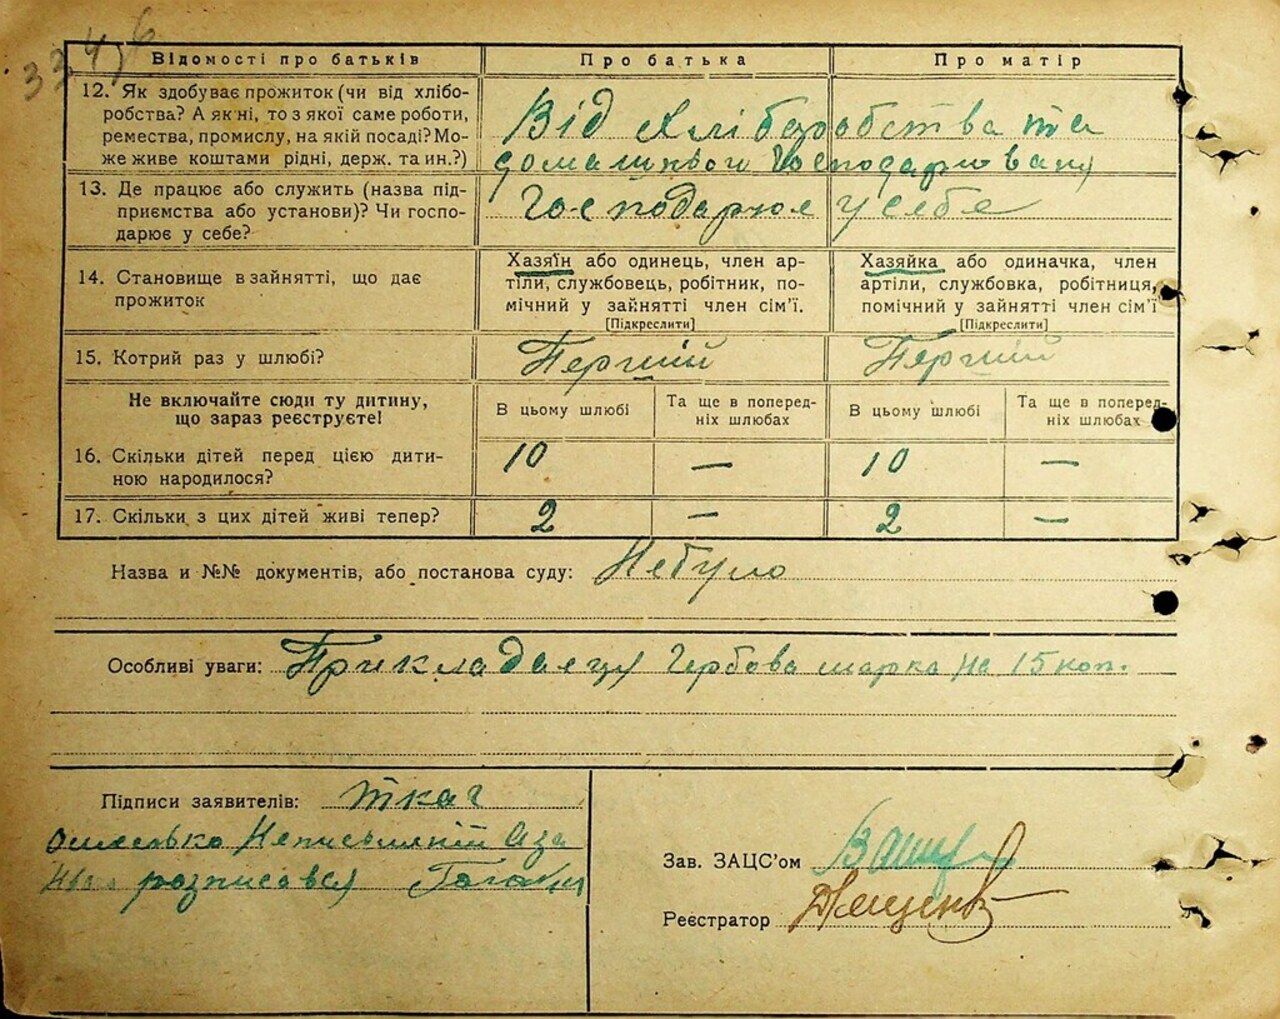 Відомості про батьків
Про батька
Про матір
12. Як здобуває прожиток (чи від хлібо-
робства? А як ні, то з якої саме роботи,
ремества, промислу, на якій посаді? Мо-
же живе коштами рідні, держ. та ин.?)
Від хліборобства та
домашнього господарювання
13. Де працює або служить (назва під-
приємства або установи)? Чи госпо-
дарює у себе?
Господарює у себе
14. Становище в зайнятті, що дає
прожиток
Хазяїн або одинець, член ар-
тіли, службовець, робітник, по-
мічний у зайнятті член сім'ї.
[Підкреслити]
Хазяйка або одиначка, член
артіли, службовка, робітниця,
помічний у зайнятті член сім'ї
[Підкреслити]
15. Котрий раз у шлюбі?
Перший
Перший
Не включайте сюди ту дитину,
що зараз реєструєте!
В цьому шлюбі
Та ще в поперед-
ніх шлюбах
В цьому шлюбі
Та ще в поперед-
ніх шлюбах
16. Скільки дітей перед цією дити-
ною народилося?
10
—
10
—
17. Скільки з цих дітей живі тепер?
2
—
2
—
Назва и №№ документів, або постанова суду: Небуло
Особливі уваги: Прикладаєця гербова марка на 15 коп.
Підписи заявителів: Ткач
неписьмений
розписався
Зав. ЗАЦС'ом
Реєстратор